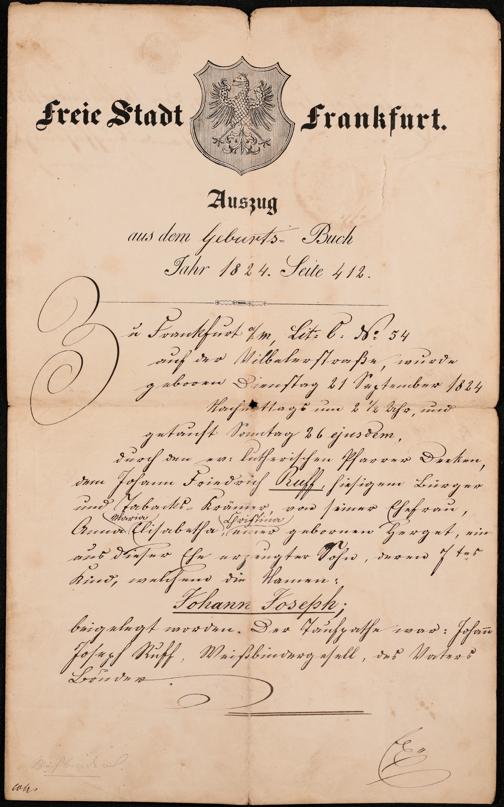 Freie Stadt Frankfurt.
Auszug
aus dem Geburts- Buch
Jahr 1824. Seite 412.
Zu Frankfurt a/m, Lit: C. No. 54
auf der Vilbelerstraße, wurde
geboren Dienstag 21 September 1824
Nachmittags um 2 ½ Uhr, und
getauft Sonntag 26 ejusdem,
durch den ev: lutherischen Pfarrer
dem Johann Friedrich Ruff, hiesigem Bürger
und Tabacks-Krämer, von seiner Ehefrau,
Maria Christina
Anna Elisabetha, einer gebornen Herget, ein
aus dieser Ehe erzeugter Sohn, deren 7tes
Kind, welchem die Namen:
Johann Joseph;
beigelegt worden. Der Taufpathe war: Johann
Joseph Ruff, Weißbindergesell, des Vaters
Bruder.